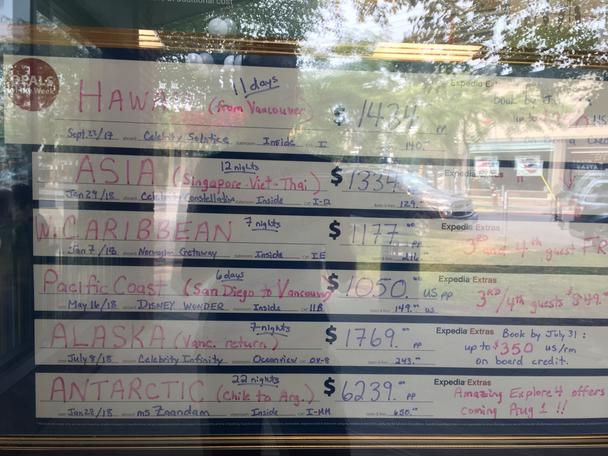 additional cost
DEALS
of the Week
11 days
HAWAII (from Vancouver) $ 1434. pp
Expedia Extras
book by J
up to
Sept.22/17 Celebrity Solstice Inside I 140.
12 nights
ASIA (Singapore-Viet-Thai) $ 1334.
Expedia Extras
Jan 29/18 Celebrity Constellation Inside 129.
W. CARIBBEAN 7 nights $ 1177.00 pp
Expedia Extras
3RD and 4th guest FR
Jan 7/18 Norwegian Getaway Inside IE
6 days
Pacific Coast (San Diego to Vancouver) $ 1050.00 US pp
Expedia Extras
3RD/4th guests $849
May 16/18 DISNEY WONDER Inside 11B 149.00 US
7-nights
ALASKA (Vanc. return) $ 1769.00 pp
Expedia Extras Book by July 31:
up to $350 us/rm
on board credit.
July 8/18 Celebrity Infinity Oceanview OV-8 243.00
22 nights
ANTARCTIC (Chile to Arg.) $ 6239.00 pp
Expedia Extras
Amazing Explore 4 offers
coming Aug 1 !!
Jan 28/18 ms Zaandam Inside I-MM 650.00